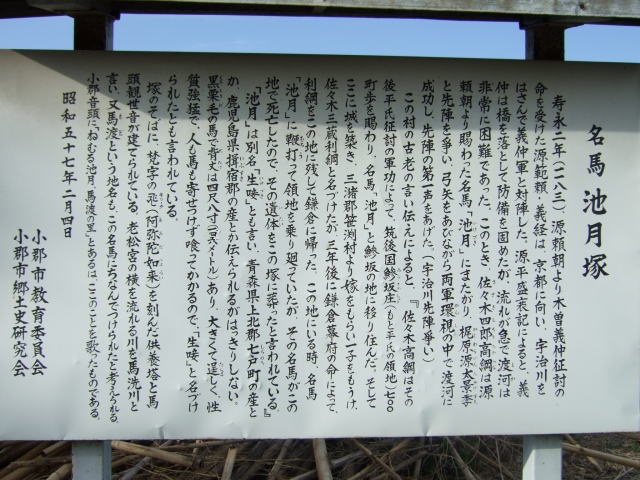 名馬 池月塚
寿永二年(一一八三)、源頼朝より木曽義仲征討の
命を受けた源範頼・義経は、京都に向い、宇治川を
はさんで義仲軍と対陣した。源平盛衰記によると、義
仲は橋を落として防備を固めたが、流れが急で渡河は
非常に困難であった。このとき、佐々木四郎高綱は源
頼朝より賜わった名馬「池月」にまたがり、梶原源太景季
と先陣を争い、弓矢をあびながら両軍環視の中で渡河に
成功し、先陣の第一声をあげた。(宇治川先陣争い)
この村の古老の言い伝えによると、『佐々木高綱はその
後平氏征討の軍功によって、筑後国鯵坂庄(もと平氏の領地)七〇〇
町歩を賜わり、名馬、池月」と鯵坂の地に移り住んだ。そして
ここに城を築き、三潴郡笹渕村より嫁をもらい一子をもうけ、
佐々木三蔵利綱と名づけたが、三年後に鎌倉幕府の命によって、
利綱をこの地に残して鎌倉に帰った。この地にいる時、名馬
「池月」に鞭打って領地を乗り廻っていたが、その名馬がこの
地で死亡したので、その遺体をこの塚に葬ったと言われている。』
「池月」は別名「生唼」とも言い、青森県上北郡七戸町の産と
か、鹿児島県揖宿郡の産とか伝えられるがはっきりしない。
黒栗毛の馬で背丈は四尺八寸(一・四五メートル)あり、大きくて逞しく、性
質強猛で、人も馬も寄せつけず喰ってかかるので、「生唼」と名づけ
られたとも言われている。
塚のそばに、梵字の(阿弥陀如来)を刻んだ供養塔と馬
頭観世音が建てられている。老松宮の横を流れる川を馬洗川と
言い、又馬渡という地名も、この名馬にちなんでつけられたと考えられる。
小郡音頭に「ねむる池月、馬渡の里」とあるは、ここのことを歌ったものである。
昭和五十七年二月四日
小郡市教育委員会
小郡市郷土史研究会